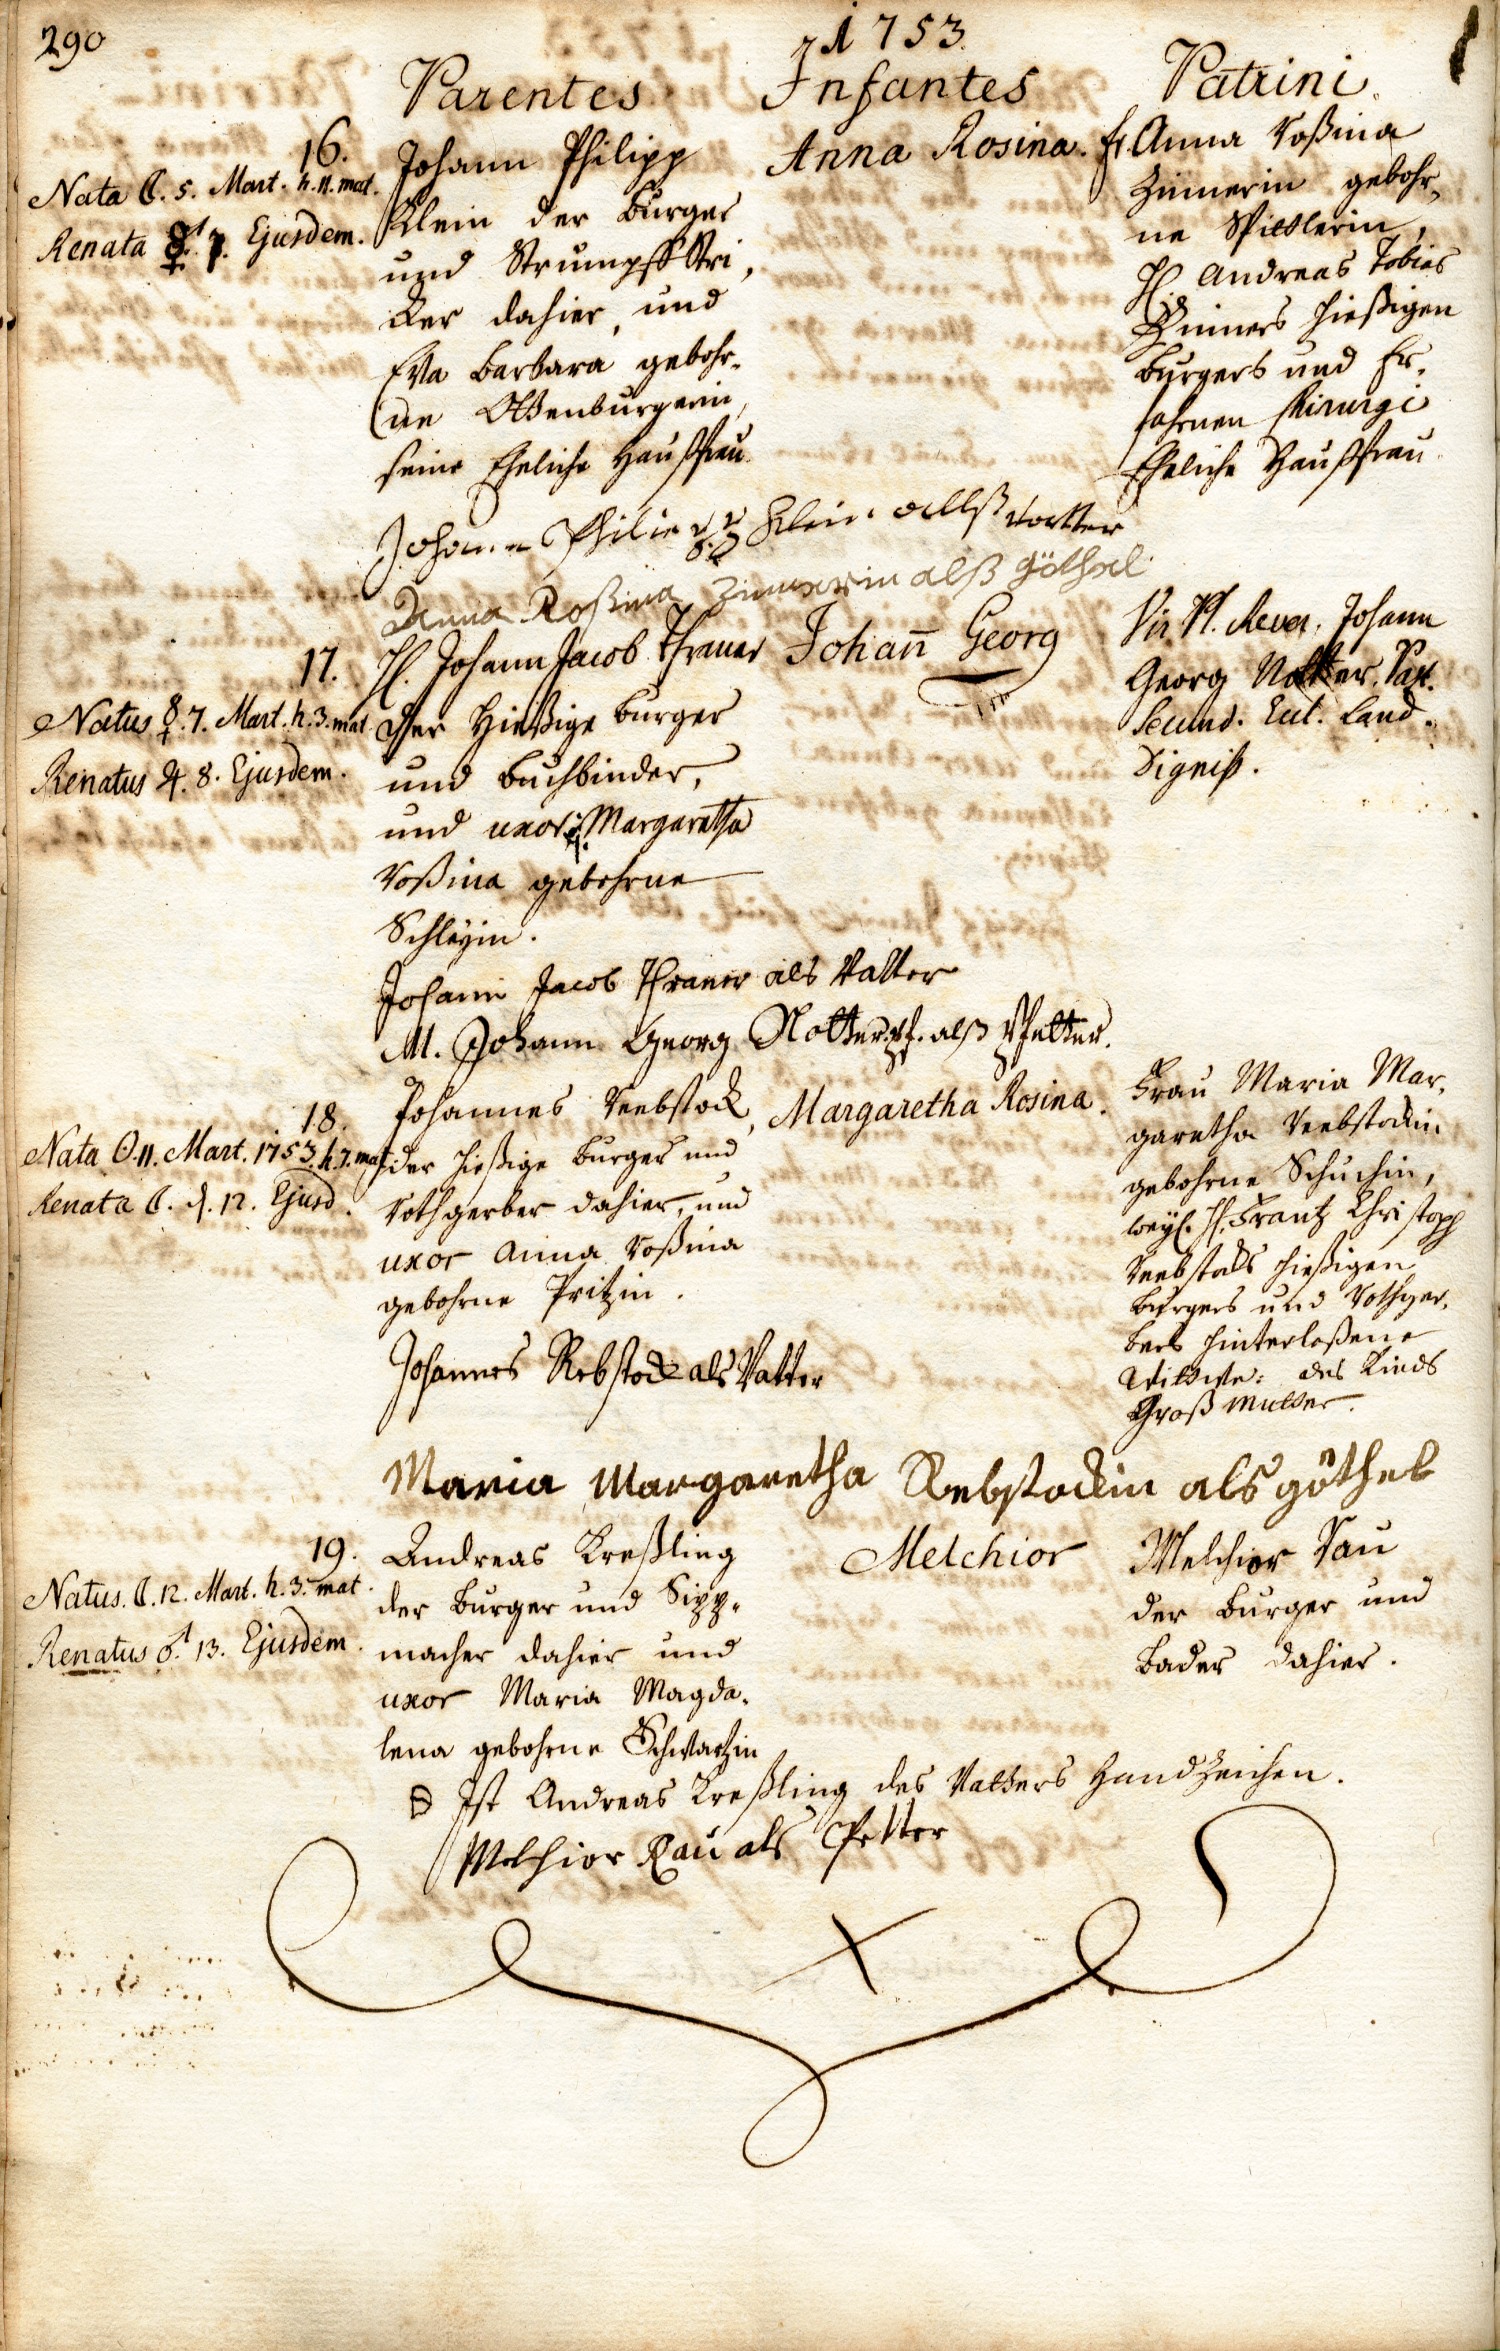 290
1753.
Parentes
Infantes
Patrini.
16.
Nata ☾. 5. Mart. h. 11. mat.
Renata 7. Ejusdem.
Johann Philipp
Klein der Burger
und Strumpff Stri,
cker dahier, und
Eva Barbara gebohr-
ne Ottenburgerin,
seine Eheliche Haußfrau.
Anna Rosina.
Fr. Anna Roßina
Zinnerin gebohr-
ne Spittlerin,
H. Andreas Tobias
Zinners hießigen
Burgers und Er-
fahrnen Chirurgi
Eheliche Haußfrau.
Johann Philipp Klein allß Vatter
Anna Roßina Zinnerin alß Göthel
17.
Natus ☿. 7. Mart. h. 3. mat.
Renatus ♃. 8. Ejusdem.
H. Johann Jacob Thraner
der Hießige Burger
und Buchbinder,
und uxor Margaretha
Roßina gebohrne
Schleyin.
Johann̄ Georg
Vir Pl. Rever. Johann
Georg Notter. Past.
Secund. Eccl. Land.
Digniß.
Johann Jacob Thraner als Vatter
M. Johann Georg Notter. pf. alß Pfetter.
18.
Nata ☉. 11. Mart. 1753. h. 7. mat
Renata ☾. d. 12. Ejusd.
Johannes Rebstock,
der hießige Burger und
Rothgerber dahier, und
uxor Anna Roßina
gebohrne Pritzin.
Margaretha Rosina.
Frau Maria Mar-
garetha Rebstockin
gebohrne Schuchin,
weyl. H. Frantz Christoph
Rebstocks hießigen
Burgers und Rothger-
bers hinterlaßene
Wittwe: des Kinds
Groß Mutter.
Johannes Rebstock als Vatter
Maria Margaretha Rebstockin als göthel
19.
Natus. ☾. 12. Mart. h. 3. mat.
Renatus ♂. 13. Ejusdem.
Andreas Kreßling
der Burger und Sipp-
macher dahier und
uxor Maria Magda-
lena gebohrne Schwartzin
Melchior
Melchior Rau
der Burger und
Bader dahier.
Ist Andreas Kreßling des Vatters Handzeichen.
Melchior Rau als Petter